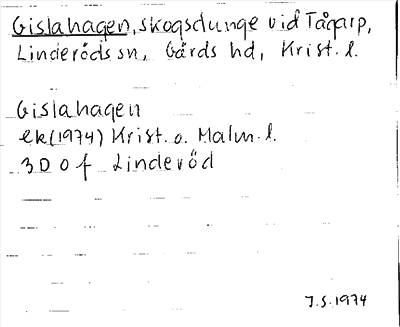 Gislahagen, skogsdunge vid Tågarp,
Linderöds sn, Gärds hd, Krist. l.
Gislahagen
ek (1974) Krist. o. Malm. l.
3 D 0 f Linderöd
J.S. 1974